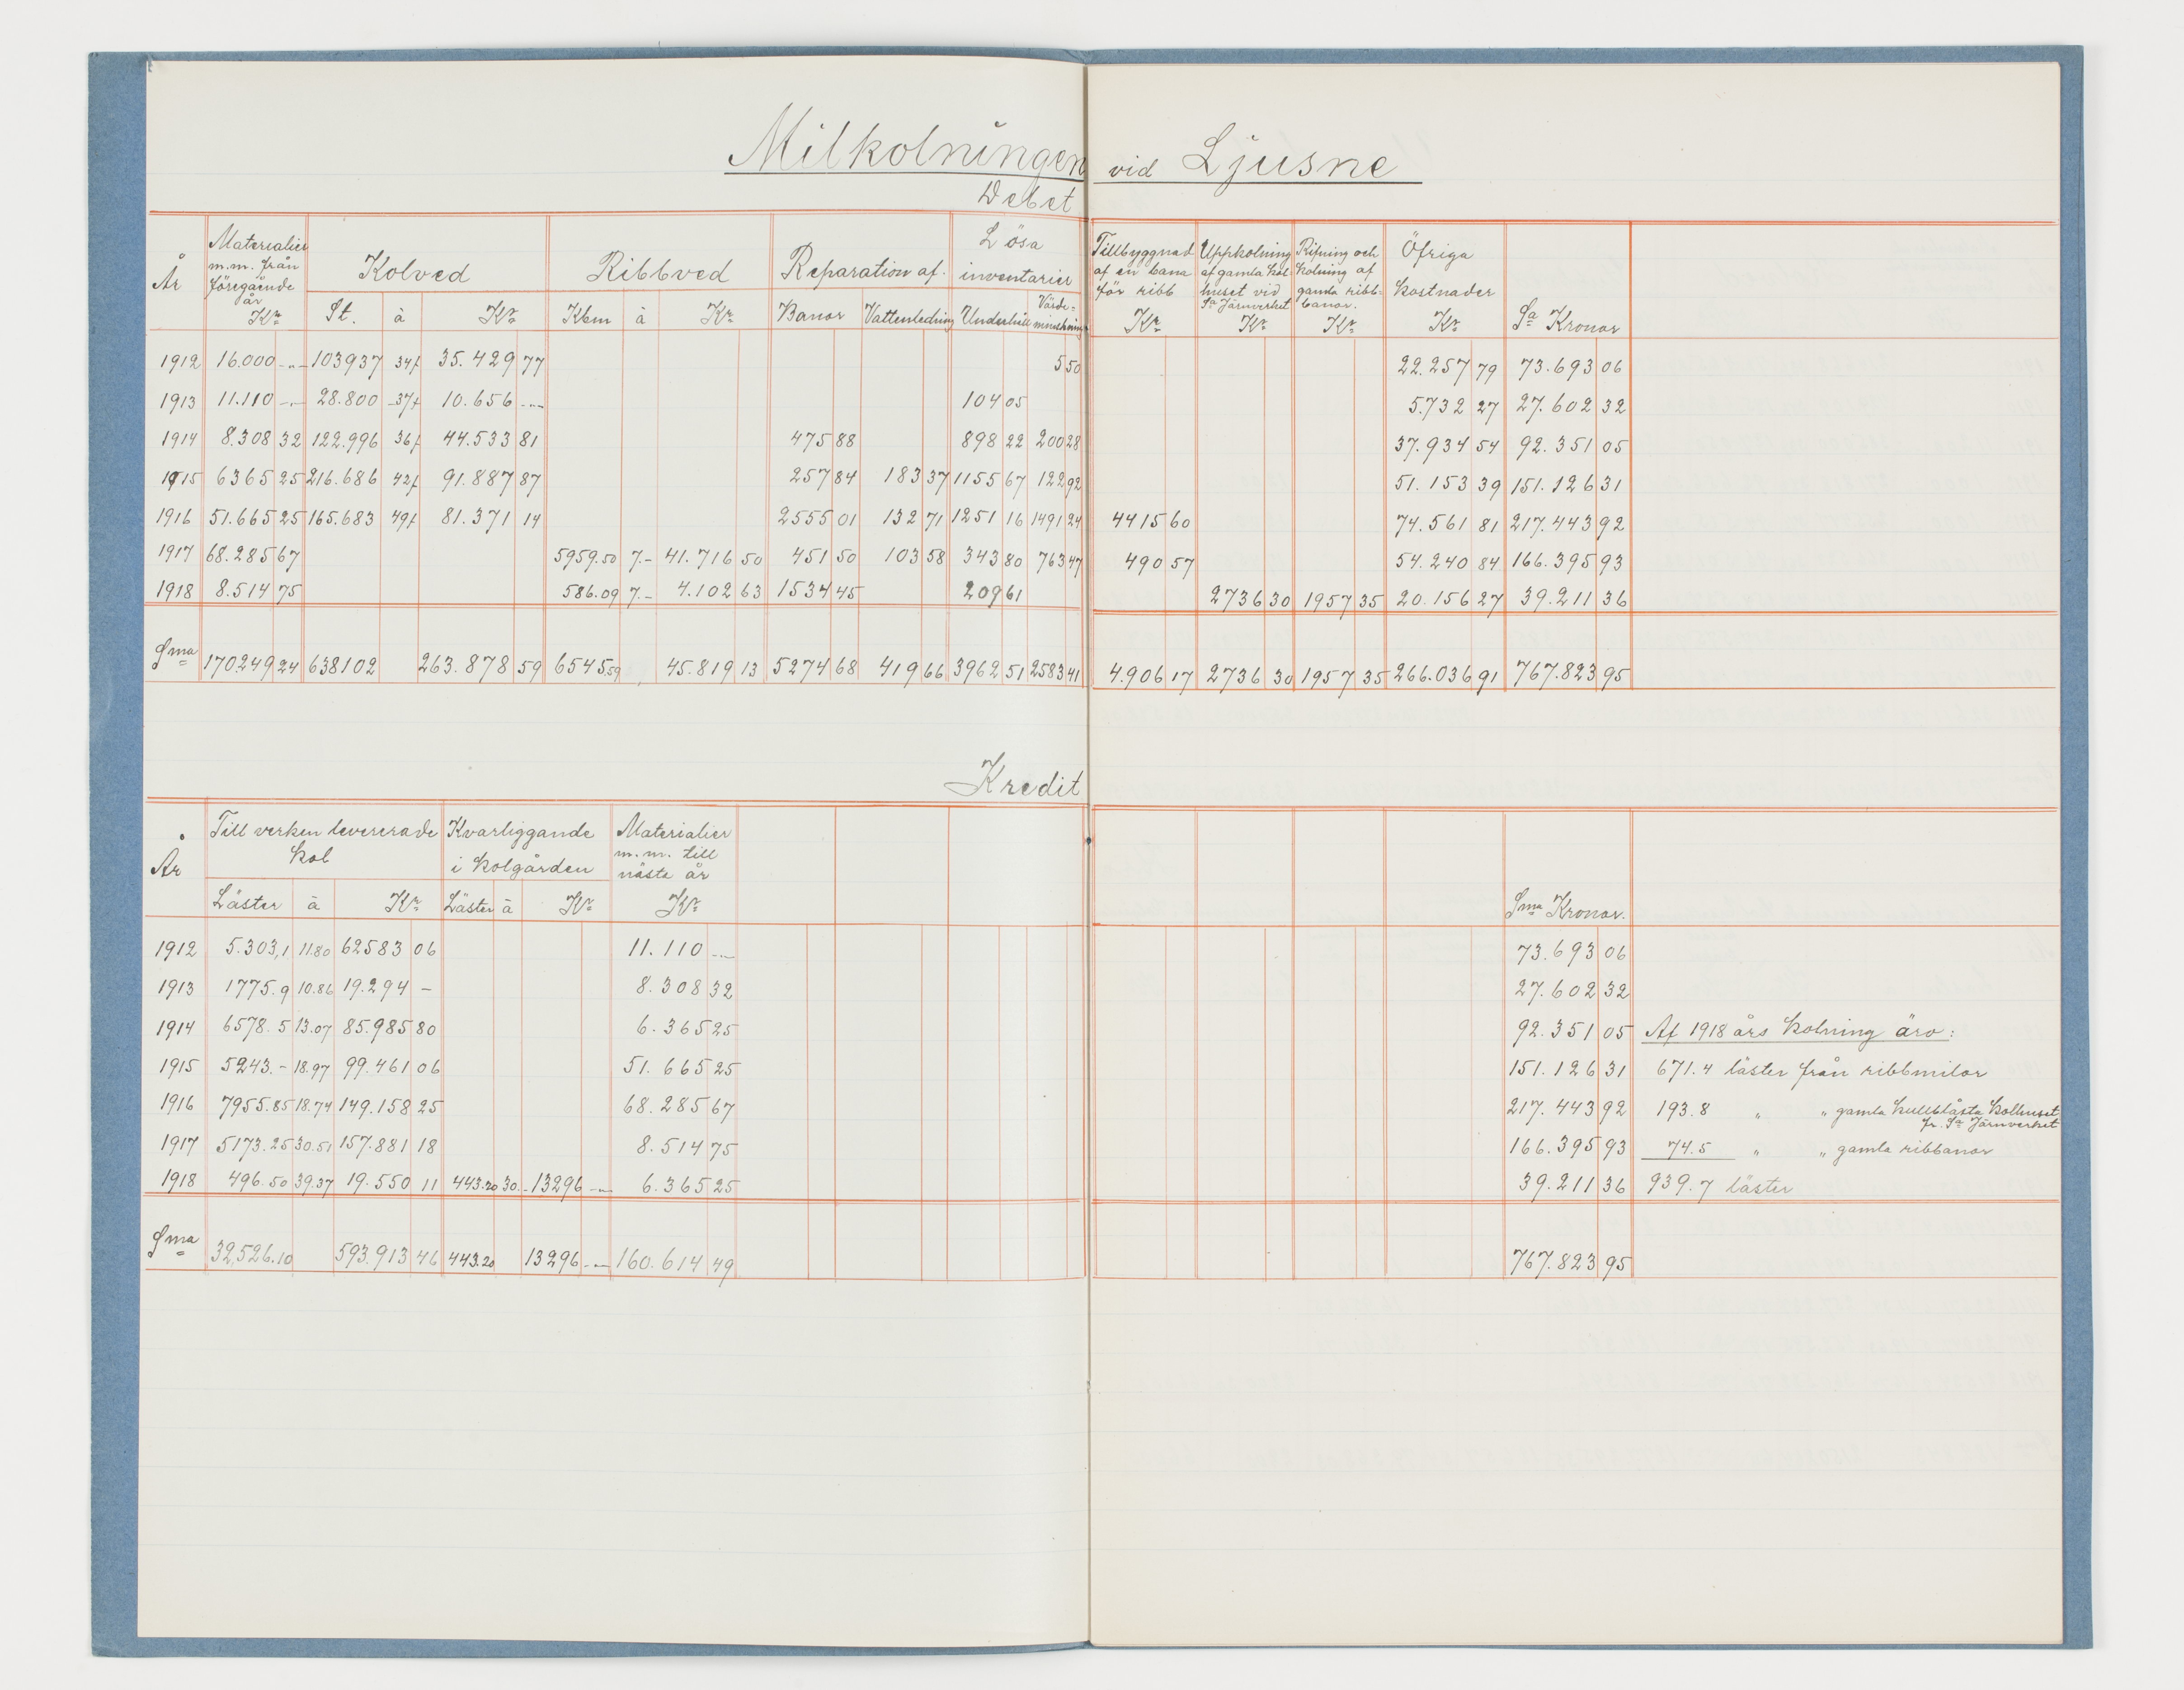 Milkolningen vid Ljusne
Debet
År Materialier m.m. från föregående år Kr Kolved Ribbved Reparation af Lösa inventarier Tillbyggnad af en bana för ribb Kr Uppkolning af gamla kolhuset vid Sa Järnverket Kr Rifning och kolning af gamla ribbbanor. Kr Öfriga kostnader Kr Sa Kronor
St. à Kr Kbm à Kr Banor Vattenledning Underhåll Värdeminskning
1912 16.000 -"- 103937 34f 35.429 77 5 50 22.257 79 73.693 06
1913 11.110 -"- 28.800 -37f 10.656 -"- 104 05 5.732 27 27.602 32
1914 8.308 32 122.996 36f 44.533 81 475 88 898 22 200 28 37.934 54 92.351 05
1915 6365 25 216.686 42f 91.887 87 257 84 183 37 1155 67 122 92 51.153 39 151.126 31
1916 51.665 25 165.683 49f 81.371 14 2555 01 132 71 1251 16 1491 24 4415 60 74.561 81 217.443 92
1917 68.285 67 5959.50 7.- 41.716 50 451 50 103 58 343 80 763 47 490 57 54.240 84 166.395 93
1918 8.514 75 586.09 7.- 4.102 63 1534 45 209 61 2736 30 1957 35 20.156 27 39.211 36
Sma 170249 24 638102 263.878 59 6545.59 45.819 13 5274 68 419 66 3962 51 2583 41 4.906 17 2736 30 1957 35 266.036 91 767.823 95
Kredit
År Till verken levererade kol Kvarliggande i kolgården Materialier m.m. till nästa år Kr Sma Kronor.
Läster à Kr Läster à Kr
1912 5.303,1 11.80 62583 06 11.110 -"- 73.693 06
1913 1775.9 10.86 19.294 - 8.308 32 27.602 32
1914 6578.5 13.07 85.985 80 6.365 25 92.351 05 Af 1918 års kolning äro:
1915 5243.- 18.97 99.461 06 51.665 25 151.126 31 671.4 läster från ribbmilor
1916 7955.85 18.74 149.158 25 68.285 67 217.443 92 193.8 " " gamla kullblåsta kolhuset
fr. Sa Järnverket
1917 5173.25 30.51 157.881 18 8.514 75 166.395 93 74.5 " " gamla ribbanor
1918 496.50 39.37 19.550 11 443.20 30.- 13296 -"- 6.365 25 39.211 36 939.7 läster
Sma 32,526.10 593.913 46 443.20 13296 -"- 160.614 49 767.823 95